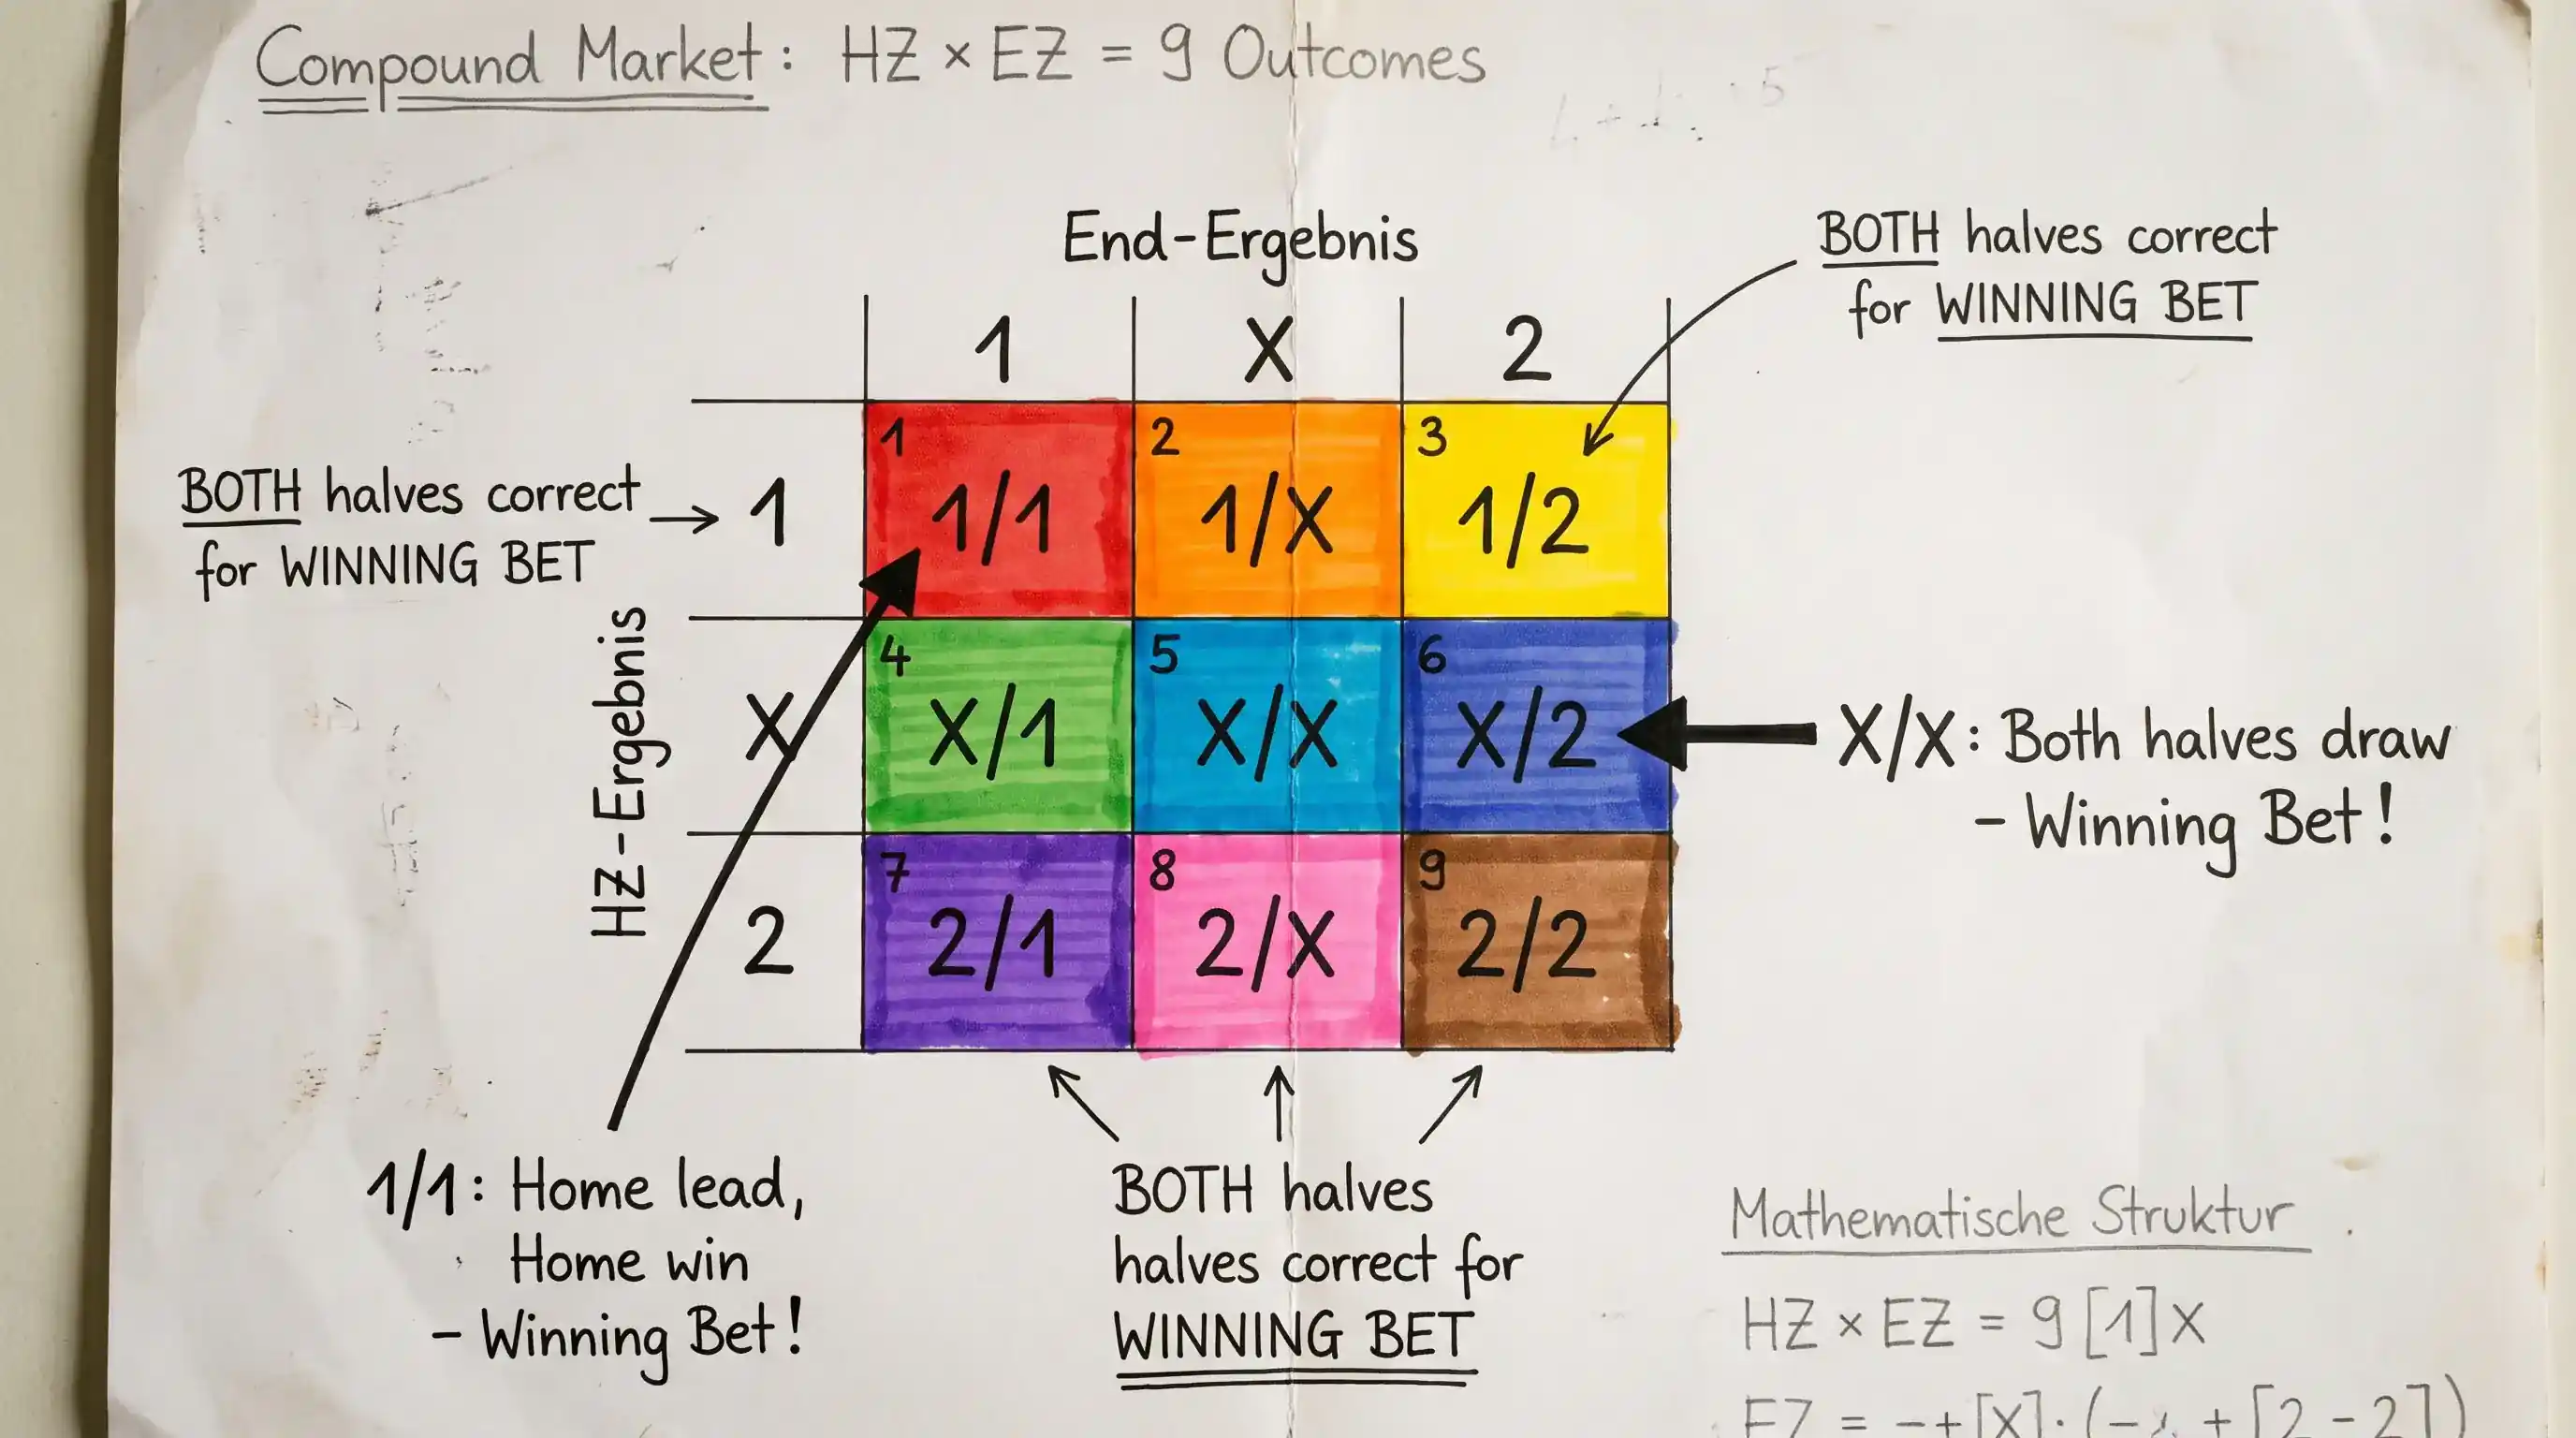 Compound Market: HZ × EZ = 9 Outcomes
End-Ergebnis
BOTH halves correct
for WINNING BET
1 X 2
BOTH halves correct
for WINNING BET
HZ-Ergebnis
1
1 1/1
2 1/X
3 1/2
X
4 X/1
5 X/X
6 X/2
X/X: Both halves draw
- Winning Bet!
2
7 2/1
8 2/X
9 2/2
1/1: Home lead,
Home win
- Winning Bet!
BOTH halves
halves correct for
WINNING BET
Mathematische Struktur
HZ × EZ = 9 [1] X